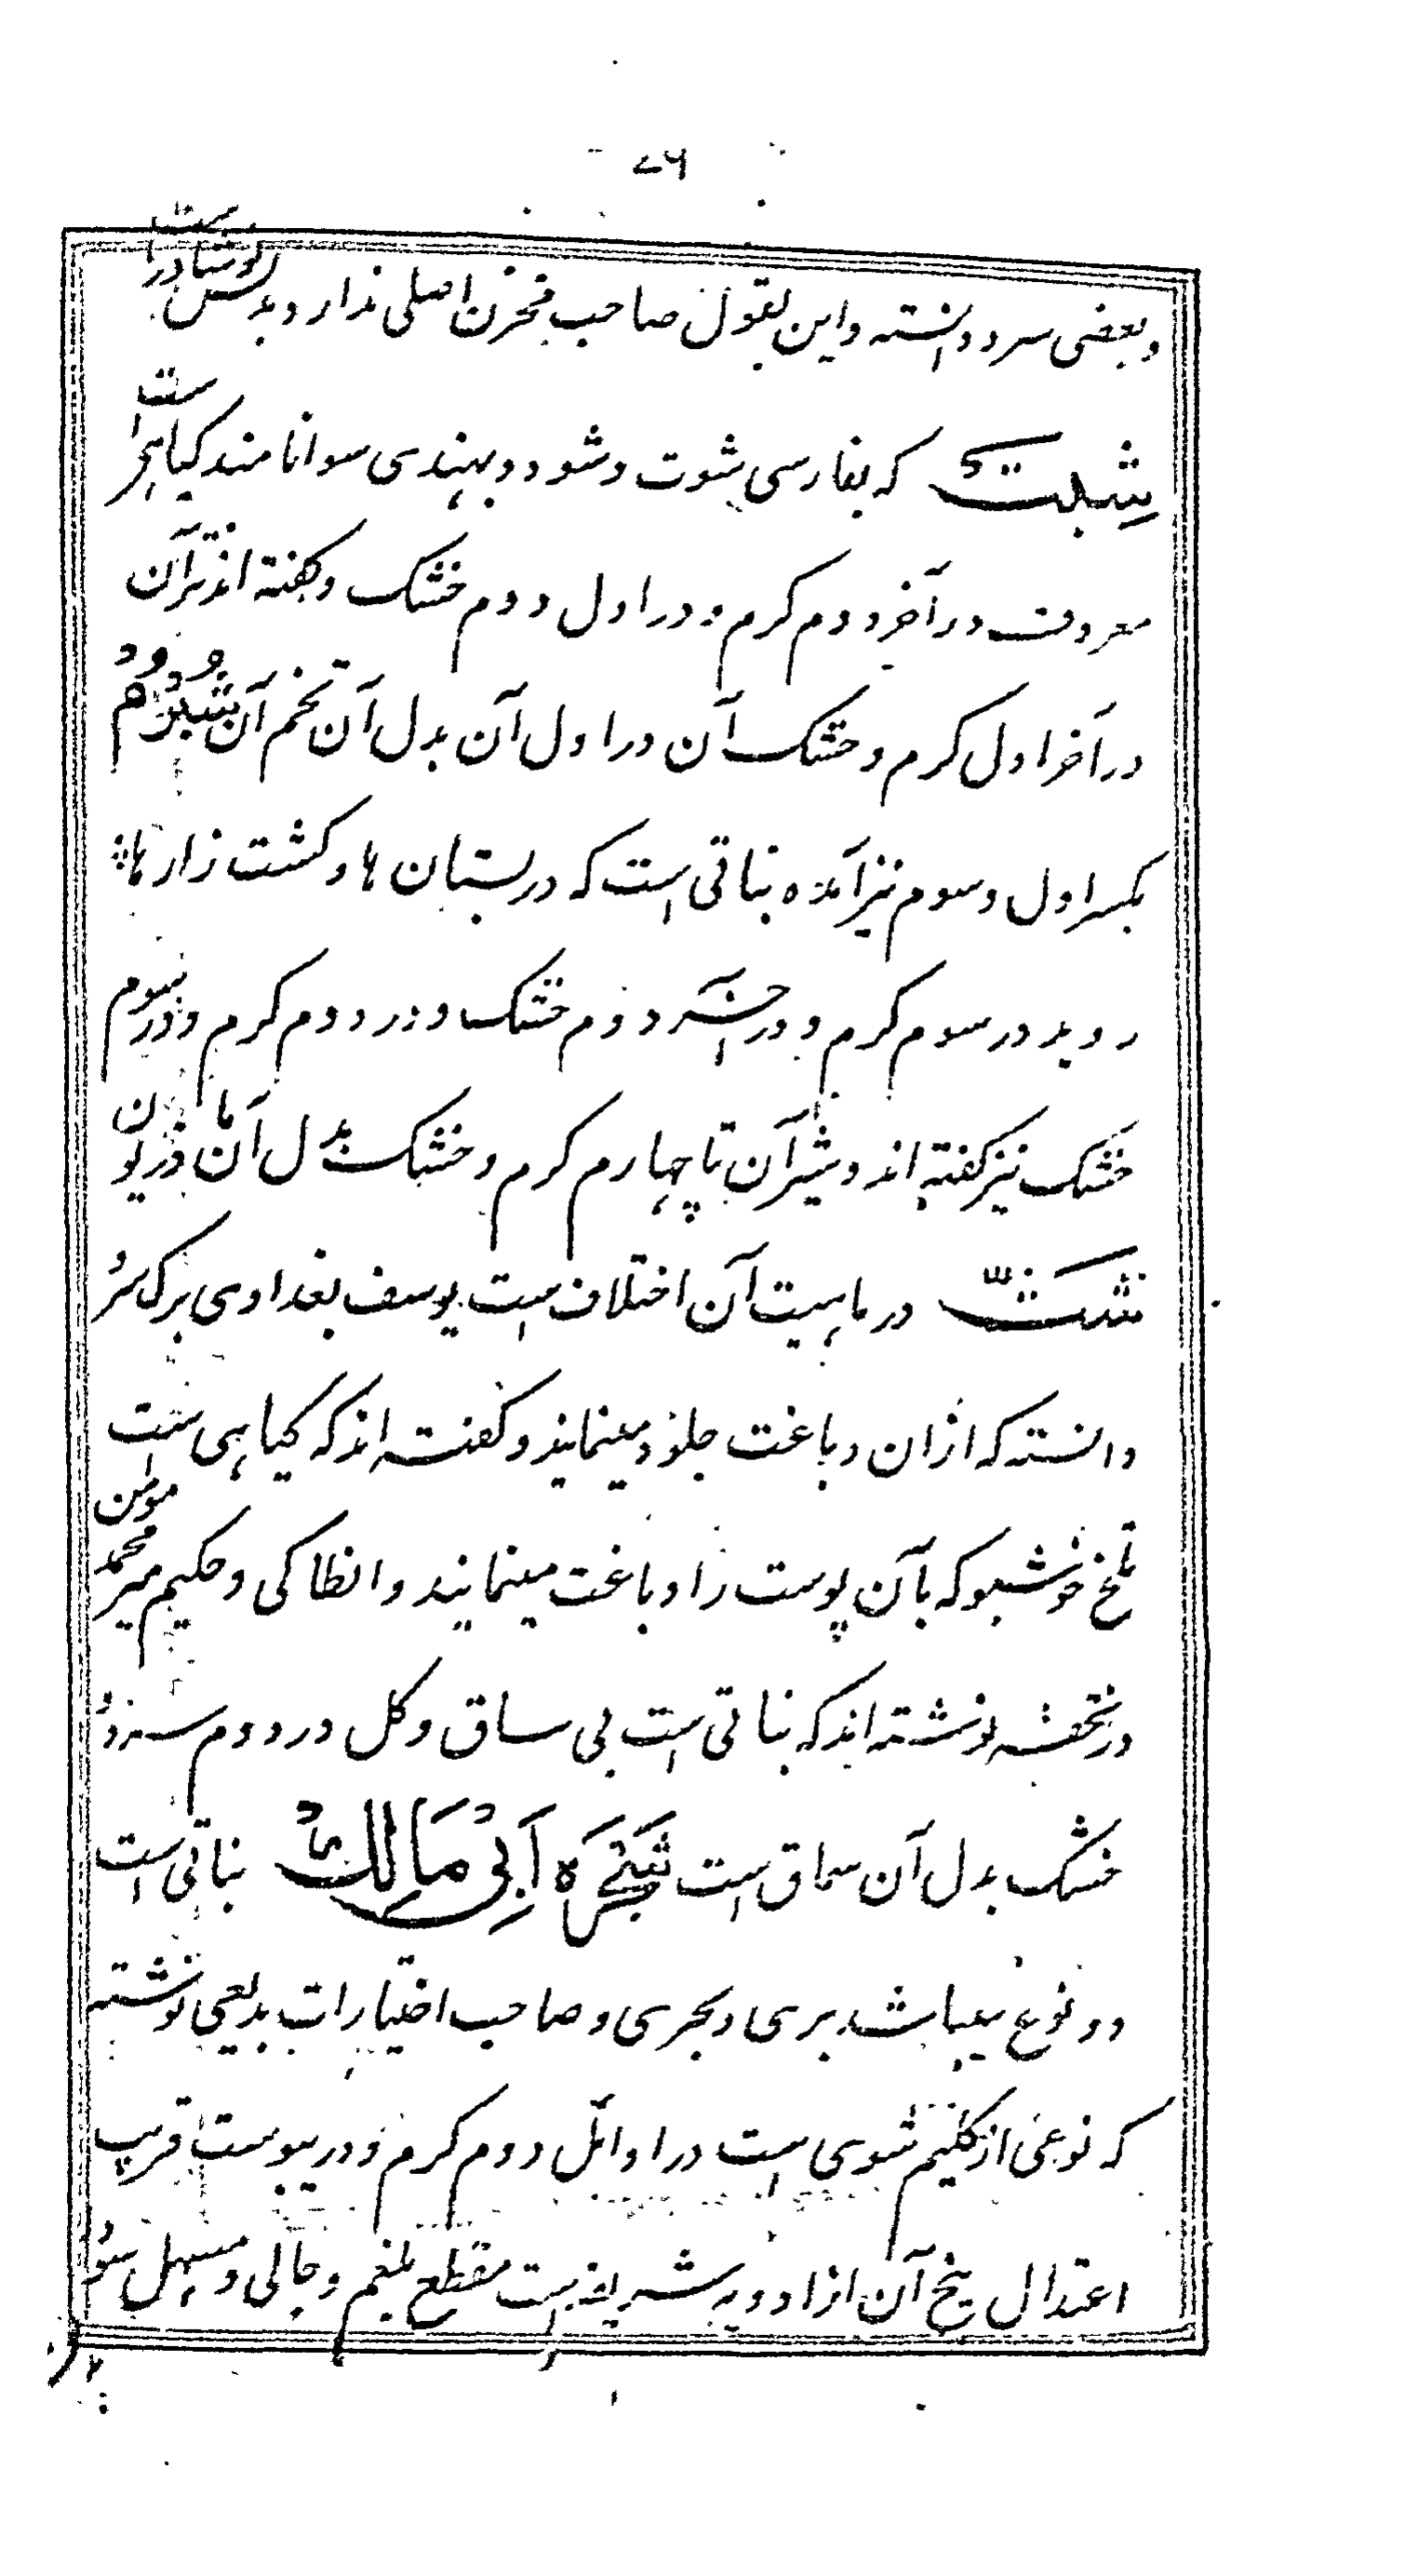 ۷۶
وبعضی سرد دانسته و این بقول صاحب مخزن اصلی ندارد و بدلش نوشادر است
شِبِتّ که بفارسی شوت و شود و بهندی سوا نامند کیاهی است
معروف در آخر دوم کرم و در اول دوم خشک و کفته اند تر آن
در آخر اول کرم و خشک آن در اول آن بدل آن تخم آن شُبْرُم
بکسر اول و سوم نیز آمده نباتی است که در بستان ها و کشت زار ها
روید در سوم کرم و در آخر دوم خشک و در دوم کرم و در سوم
خشک نیز کفته اند و شیر آن تا چهارم کرم و خشک بدل آن ماذریون
شَتّ در ماهیت آن اختلاف است یوسف بغدادی برک
دانسته که ازان دباغت جلود مینمایند و کفته اند که کیاهی است
تلخ خوشبو که بآن پوست را دباغت مینمایند و انطاکی و حکیم میر محمد مومن
در تحفه نوشته اند که نباتی است بی ساق و کل در دوم سرد و
خشک بدل آن سماق است شَجَرَه اَبِیْ مَالِکْ نباتی است
دو نوع میباشد بری و بحری و صاحب اختیارات بدیعی نوشته
که نوعی از کلیم شوی است در اوائل دوم کرم و در یبوست قریب
اعتدال بیخ آن از ادویه شریفه است مقطع بلغم و جالی و مسهل